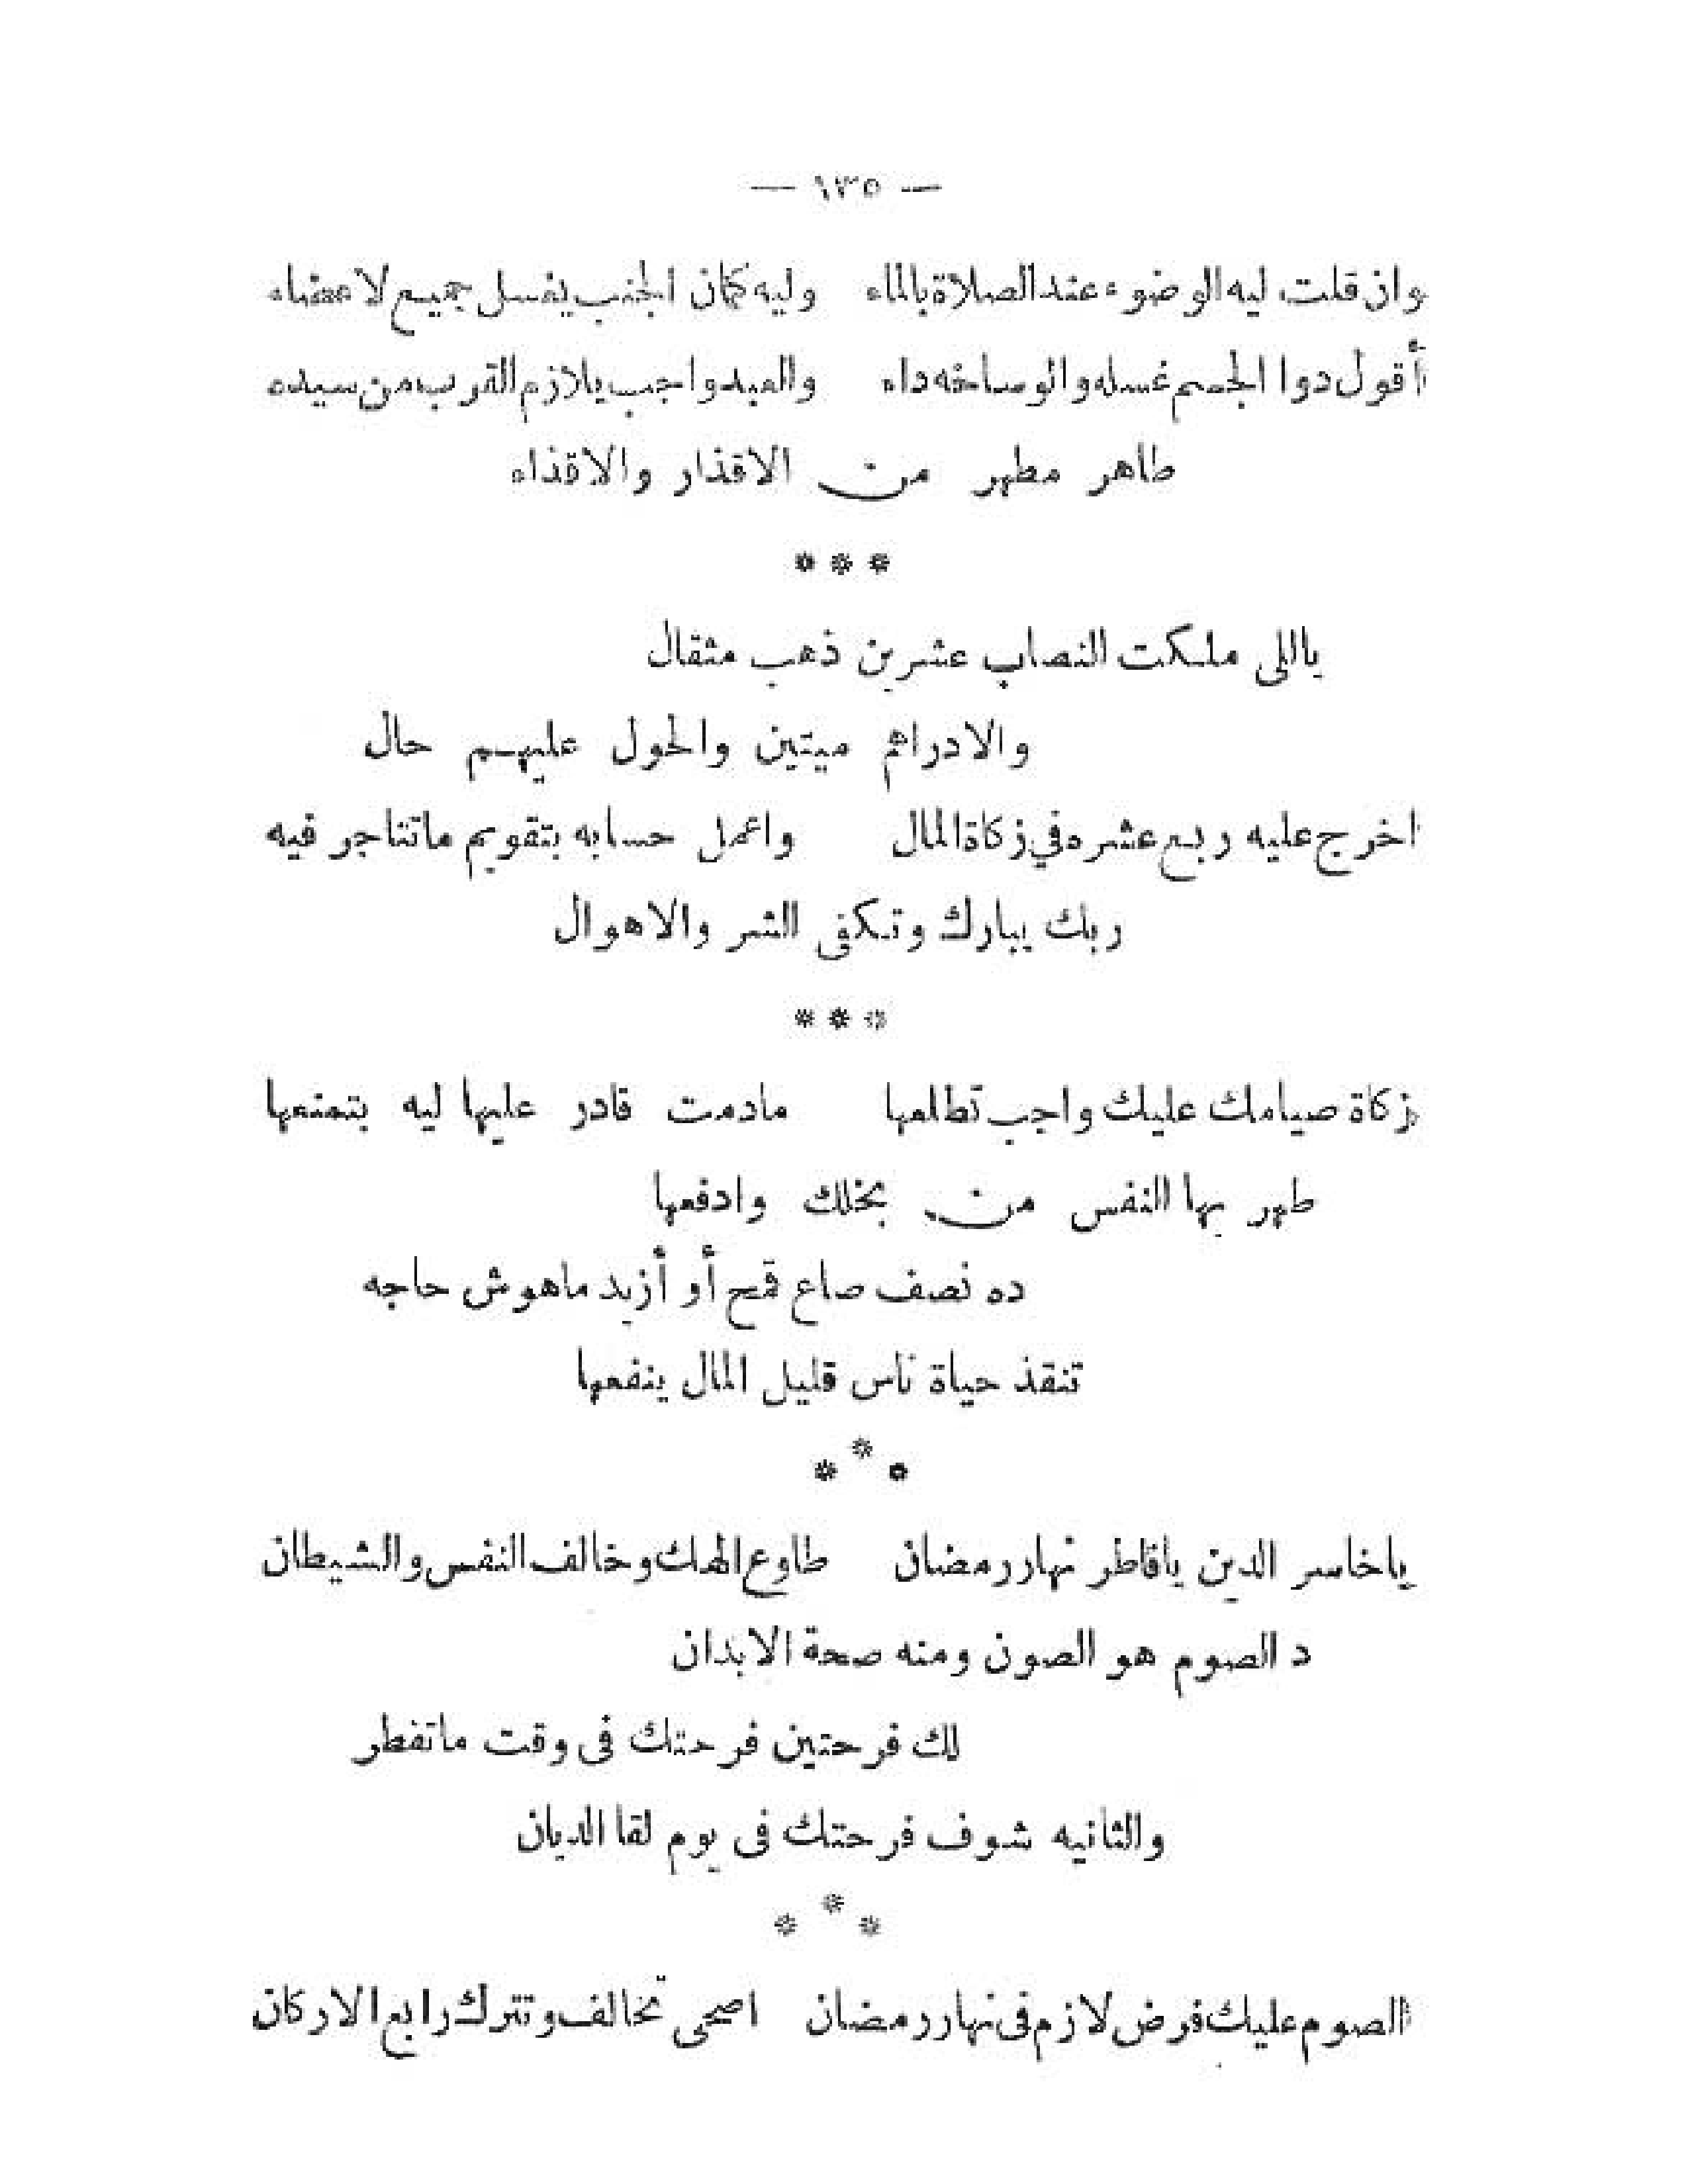 — ١٣٥ —
وان قلت ليه الوضوء عند الصلاة بالماء وليه كمان الجنب يغسل جميع لاعضاء
أقول دوا الجسم غسله والوساخه داء والعبد واجب يلازم القرب من سيده
طاهر مطهر من الاقذار والاقذاء
* * *
ياللى ملكت النصاب عشرين ذهب مثقال
والادراهم ميتين والحول عليهم حال
اخرج عليه ربع عشره في زكاة المال واعمل حسابه بتقويم ماتتاجر فيه
ربك يبارك وتكفى الشر والاهوال
* * *
زكاة صيامك عليك واجب تطلعها مادمت قادر عليها ليه بتمنعها
طهر بها النفس من بخلك وادفعها
ده نصف صاع قمح أو أزيد ماهوش حاجه
تنقذ حياة ناس قليل المال ينفعها
* * *
ياخاسر الدين يافاطر نهار رمضان طاوع الهك وخالف النفس والشيطان
د الصوم هو الصون ومنه صحة الابدان
لك فرحتين فرحتك فى وقت ماتفطر
والثانيه شوف فرحتك فى يوم لقا الديان
* * *
الصوم عليك فرض لازم فى نهار رمضان اصحى تخالف وتترك رابع الاركان